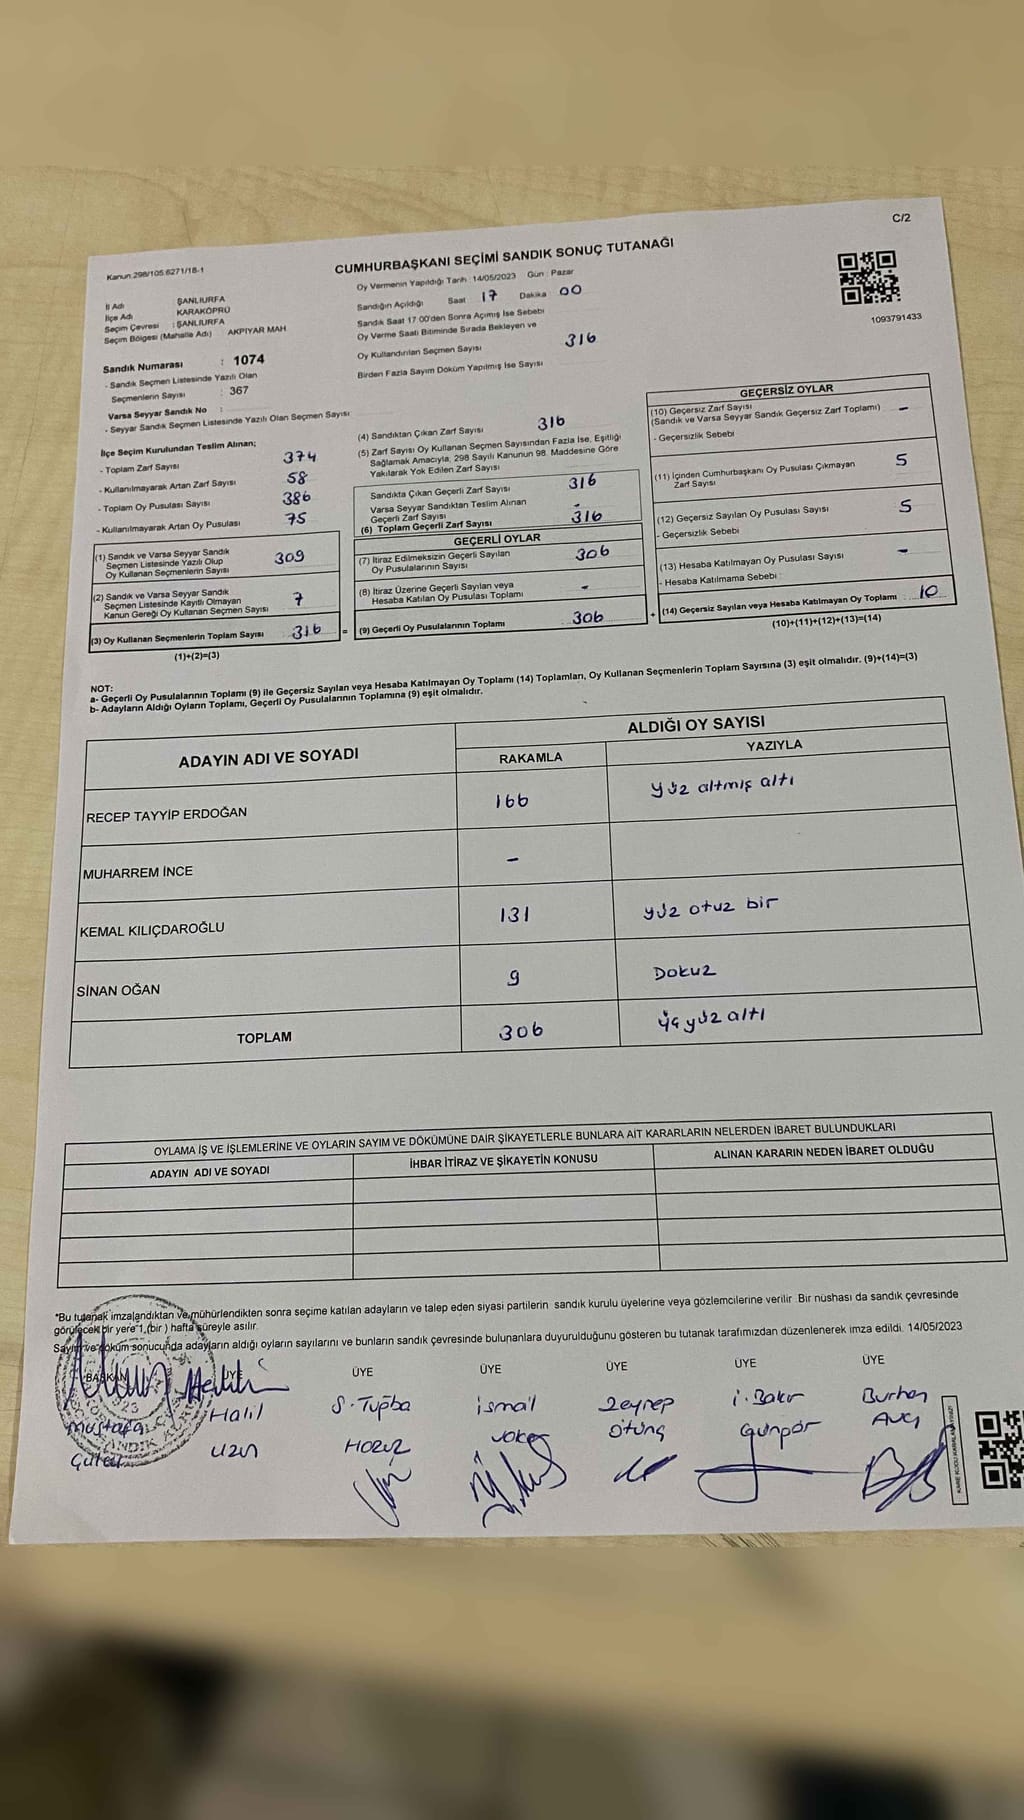 C/2
Kanun 298/105.6271/18-1
CUMHURBAŞKANI SEÇİMİ SANDIK SONUÇ TUTANAĞI
1093791433
İl Adı : ŞANLIURFA
İlçe Adı KARAKÖPRÜ
Seçim Çevresi : ŞANLIURFA
Seçim Bölgesi (Mahalle Adı) AKPIYAR MAH
Sandık Numarası : 1074
- Sandık Seçmen Listesinde Yazılı Olan
Seçmenlerin Sayısı : 367
Varsa Seyyar Sandık No :
- Seyyar Sandık Seçmen Listesinde Yazılı Olan Seçmen Sayısı
Oy Vermenin Yapıldığı Tarih 14/05/2023 Gün : Pazar
Sandığın Açıldığı Saat 17 Dakika 00
Sandık Saat 17 00'den Sonra Açımış İse Sebebi
Oy Verme Saati Bitiminde Sırada Bekleyen ve
Oy Kullandırılan Seçmen Sayısı 316
Birden Fazla Sayım Döküm Yapılmış İse Sayısı
İlçe Seçim Kurulundan Teslim Alınan;
- Toplam Zarf Sayısı 374
- Kullanılmayarak Artan Zarf Sayısı 58
- Toplam Oy Pusulası Sayısı 386
- Kullanılmayarak Artan Oy Pusulası 75
(1) Sandık ve Varsa Seyyar Sandık
Seçmen Listesinde Yazılı Olup
Oy Kullanan Seçmenlerin Sayısı 309
(2) Sandık ve Varsa Seyyar Sandık
Seçmen Listesinde Kayıtlı Olmayan
Kanun Gereği Oy Kullanan Seçmen Sayısı 7
(3) Oy Kullanan Seçmenlerin Toplam Sayısı 316 =
(1)+(2)=(3)
(4) Sandıktan Çıkan Zarf Sayısı 316
(5) Zarf Sayısı Oy Kullanan Seçmen Sayısından Fazla İse, Eşitliği
Sağlamak Amacıyla, 298 Sayılı Kanunun 98. Maddesine Göre
Yakılarak Yok Edilen Zarf Sayısı
Sandıkta Çıkan Geçerli Zarf Sayısı 316
Varsa Seyyar Sandıktan Teslim Alınan
Geçerli Zarf Sayısı -
(6) Toplam Geçerli Zarf Sayısı 316
GEÇERLİ OYLAR
(7) İtiraz Edilmeksizin Geçerli Sayılan
Oy Pusulalarının Sayısı 306
(8) İtiraz Üzerine Geçerli Sayılan veya
Hesaba Katılan Oy Pusulası Toplamı -
(9) Geçerli Oy Pusulalarının Toplamı 306 +
GEÇERSİZ OYLAR
(10) Geçersiz Zarf Sayısı
(Sandık ve Varsa Seyyar Sandık Geçersiz Zarf Toplamı) -
- Geçersizlik Sebebi
(11) İçinden Cumhurbaşkanı Oy Pusulası Çıkmayan
Zarf Sayısı 5
(12) Geçersiz Sayılan Oy Pusulası Sayısı 5
- Geçersizlik Sebebi
(13) Hesaba Katılmayan Oy Pusulası Sayısı -
- Hesaba Katılmama Sebebi :
(14) Geçersiz Sayılan veya Hesaba Katılmayan Oy Toplamı 10
(10)+(11)+(12)+(13)=(14)
NOT:
a- Geçerli Oy Pusulalarının Toplamı (9) ile Geçersiz Sayılan veya Hesaba Katılmayan Oy Toplamı (14) Toplamları, Oy Kullanan Seçmenlerin Toplam Sayısına (3) eşit olmalıdır. (9)+(14)=(3)
b- Adayların Aldığı Oyların Toplamı, Geçerli Oy Pusulalarının Toplamına (9) eşit olmalıdır.
ADAYIN ADI VE SOYADI ALDIĞI OY SAYISI
RAKAMLA YAZIYLA
RECEP TAYYİP ERDOĞAN 166 yüz altmış altı
MUHARREM İNCE -
KEMAL KILIÇDAROĞLU 131 yüz otuz bir
SİNAN OĞAN 9 Dokuz
TOPLAM 306 üç yüz altı
OYLAMA İŞ VE İŞLEMLERİNE VE OYLARIN SAYIM VE DÖKÜMÜNE DAİR ŞİKAYETLERLE BUNLARA AİT KARARLARIN NELERDEN İBARET BULUNDUKLARI
ADAYIN ADI VE SOYADI İHBAR İTİRAZ VE ŞİKAYETİN KONUSU ALINAN KARARIN NEDEN İBARET OLDUĞU
*Bu tutanak imzalandıktan ve mühürlendikten sonra seçime katılan adayların ve talep eden siyasi partilerin sandık kurulu üyelerine veya gözlemcilerine verilir. Bir nüshası da sandık çevresinde
görülecek bir yere 1 (bir ) hafta süreyle asılır.
Sayım ve döküm sonucunda adayların aldığı oyların sayılarını ve bunların sandık çevresinde bulunanlara duyurulduğunu gösteren bu tutanak tarafımızdan düzenlenerek imza edildi. 14/05/2023
BAŞKAN ÜYE ÜYE ÜYE ÜYE ÜYE ÜYE
Mustafa Halil S. Tuğba ismail Zeynep i. Bakır Burhan
uzun Avcı
KARE KODU KARALAMAYINIZ!